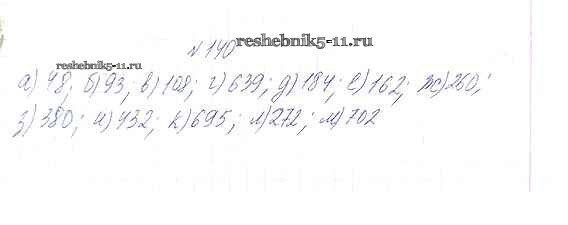 № 140
reshebnik5-11.ru
а) 48; б) 93; в) 108; г) 639; д) 184; е) 162; ж) 260;
з) 380; и) 432; к) 695; л) 272; м) 702
reshebnik5-11.ru